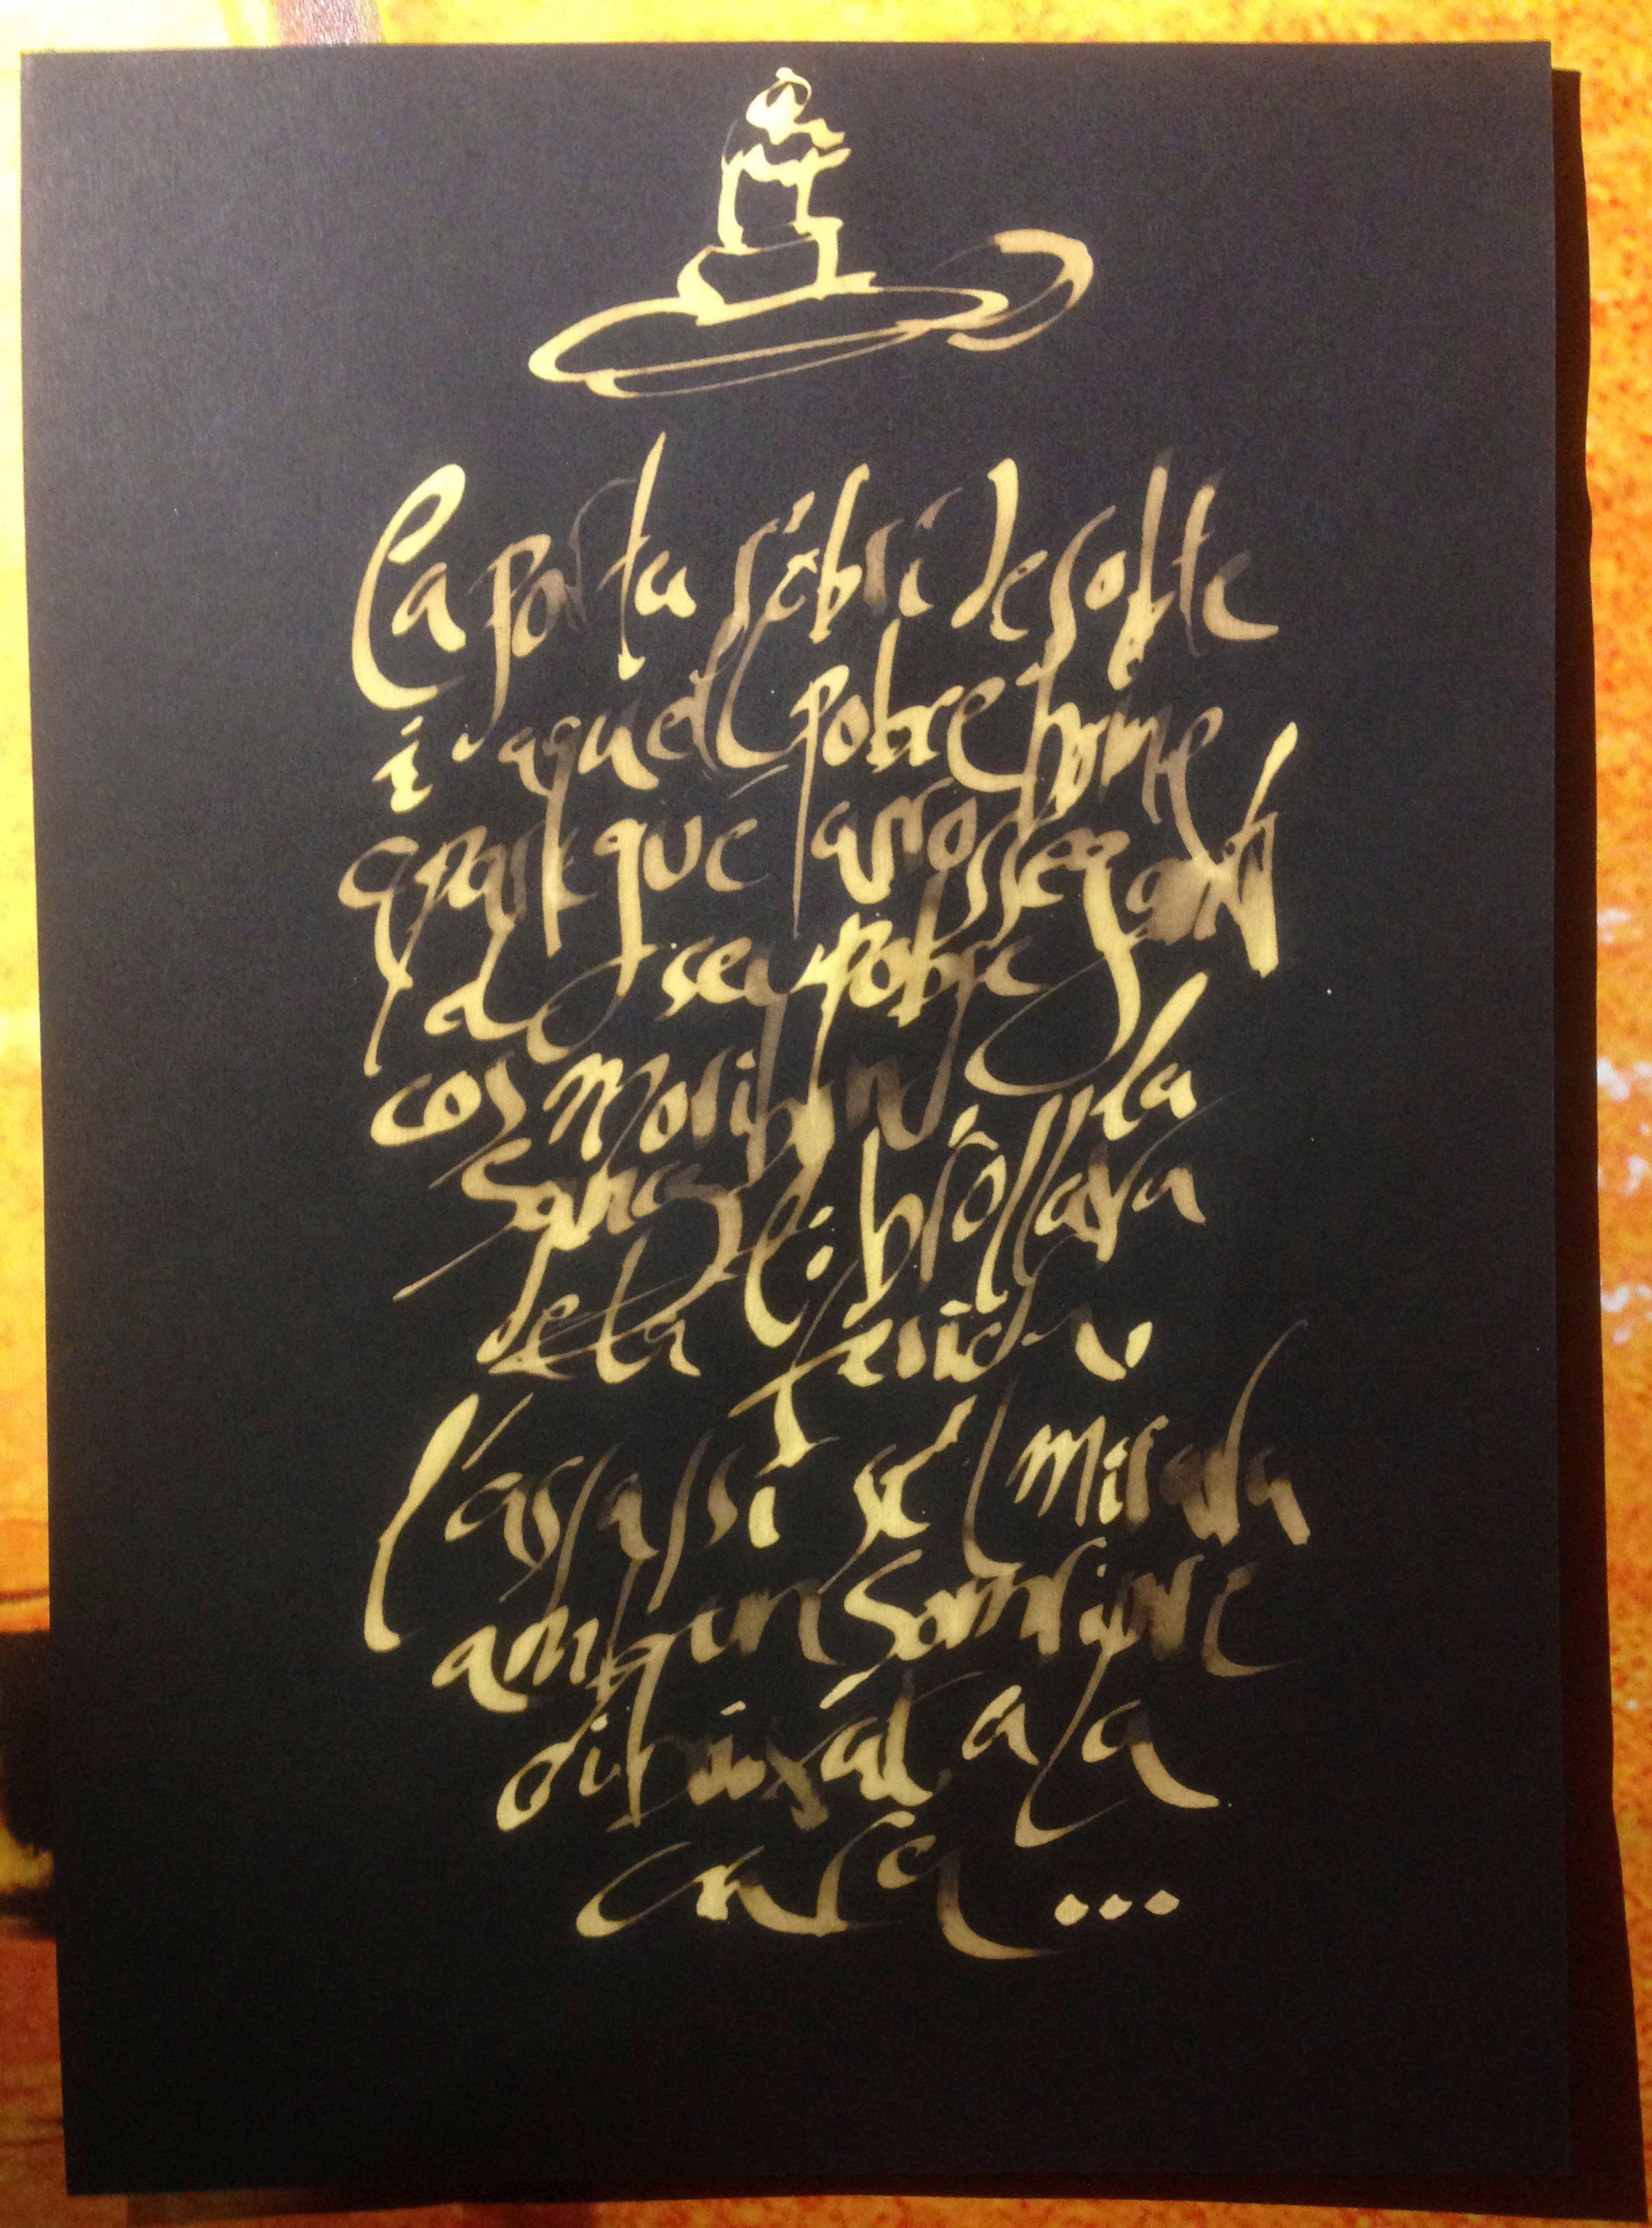 La porta s'obrí de sobte
i aquell pobre home
aparegué arrossegant
seu pobre
cos moribund, la
sang li brollava
de la ferida
l'assassí se'l mirava
amb un somriure
dibuixat a la
cara...